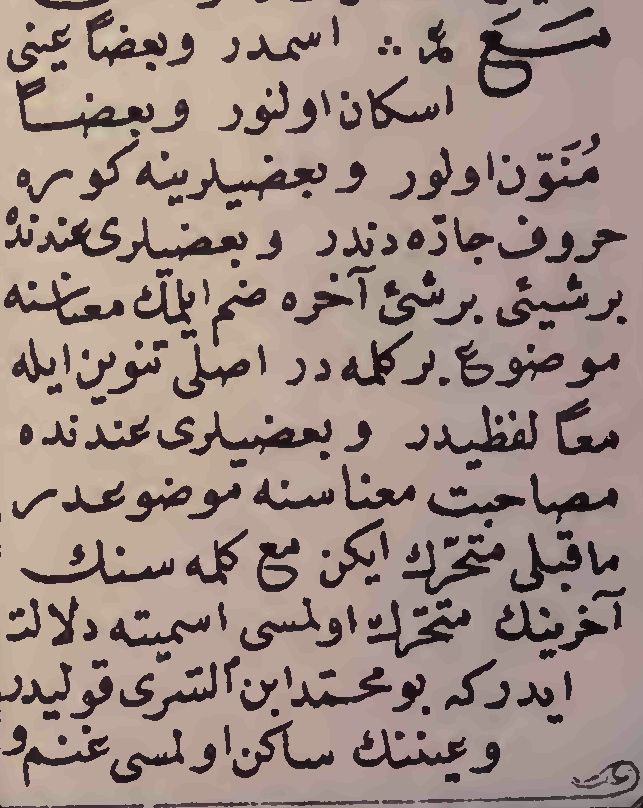 مَعَ ع م اسمدر وبعضاً عینی
اسكان اولنور وبعضاً
مُنَوّن اولور وبعضیلرینه کوره
حروف جارّه دندر وبعضیلری عندنده
برشیئی برشئ آخره ضم ایلمك معناسنه
موضوع بر كلمه در اصلی تنوین ایله
معاً لفظیدر وبعضیلری عندنده
مصاحبت معناسنه موضوعدر
ماقبلی متحرّك ایكن مع كلمه سنك
آخرینك متحرّك اولمسی اسمیته دلالت
ایدركه بو محمّد ابن السری قولیدر
وعیننك ساكن اولمسی غنم و